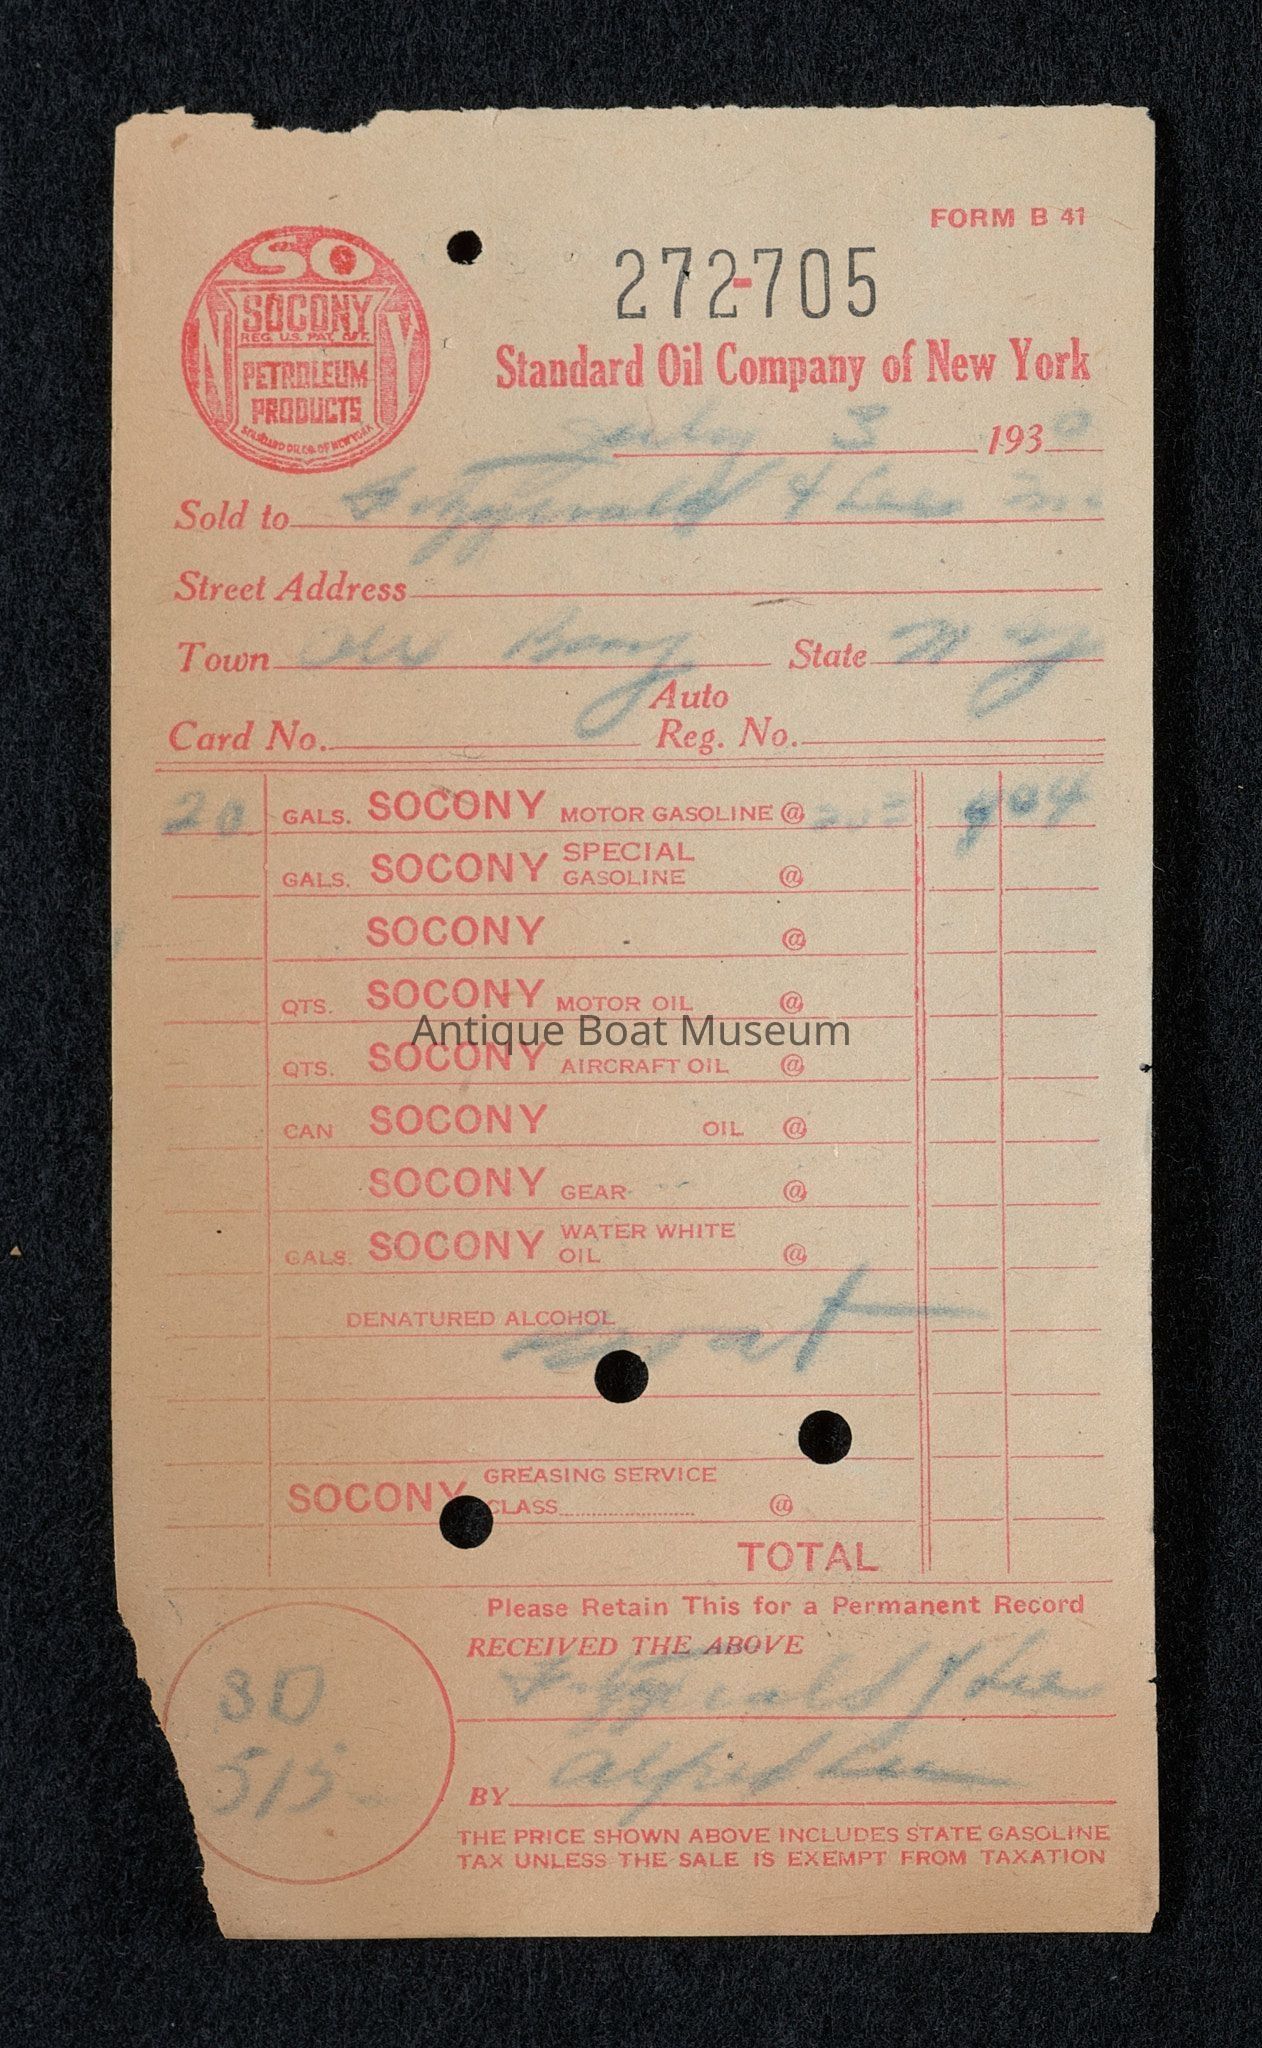 FORM B 41
SO
NY
SOCONY
REG. U.S. PAT. OFF.
PETROLEUM
PRODUCTS
STANDARD OIL CO. OF NEW YORK
272-705
Standard Oil Company of New York
July 3 1930
Sold to Fitzgerald & Lee Inc
Street Address
Town Alex Bay State N Y
Card No. Auto Reg. No.
20 GALS. SOCONY MOTOR GASOLINE @ 202 4 04
GALS. SOCONY SPECIAL GASOLINE @
SOCONY @
QTS. SOCONY MOTOR OIL @
Antique Boat Museum
QTS. SOCONY AIRCRAFT OIL @
CAN SOCONY OIL @
SOCONY GEAR @
GALS. SOCONY WATER WHITE OIL @
DENATURED ALCOHOL
SOCONY GREASING SERVICE
CLASS @
TOTAL
Please Retain This for a Permanent Record
RECEIVED THE ABOVE
Fitzgerald & Lee
BY Alfred Lee
515
THE PRICE SHOWN ABOVE INCLUDES STATE GASOLINE
TAX UNLESS THE SALE IS EXEMPT FROM TAXATION